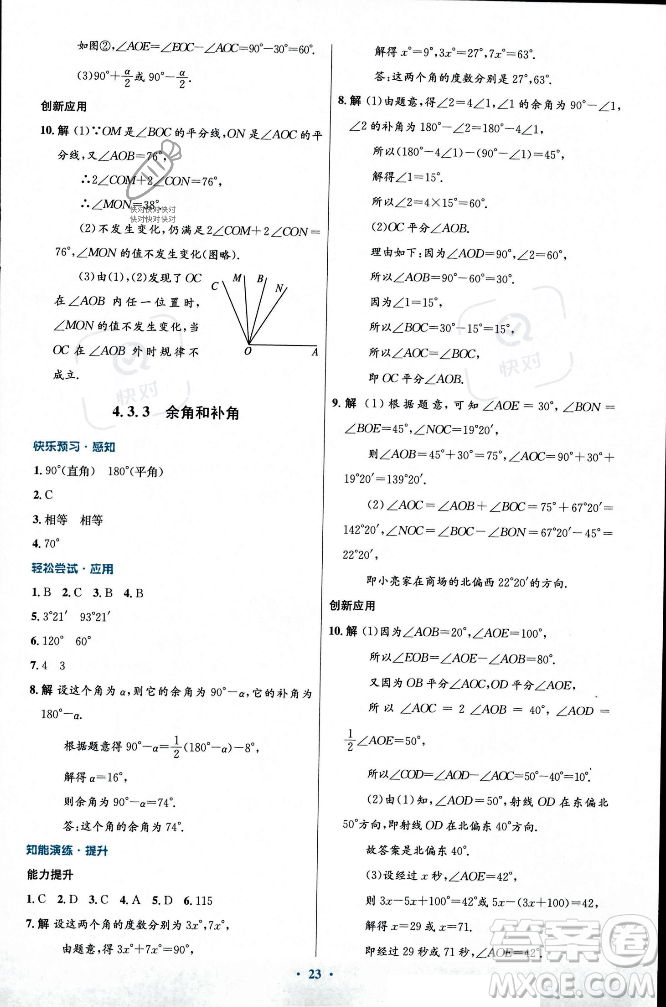 如图②,∠AOE=∠EOC-∠AOC=90°-30°=60°.
(3)90°+α/2或90°-α/2.
创新应用
10.解 (1)∵OM是∠BOC的平分线,ON是∠AOC的平
分线,又∠AOB=76°,
∴2∠COM+2∠CON=76°,
∴∠MON=38°.
快对快对快对
快对快对快对
(2)不发生变化,仍满足2∠COM+2∠CON=
76°,∠MON的值不发生变化(图略).
(3)由(1),(2)发现了OC
在∠AOB内任一位置时,
∠MON的值不发生变化,当
OC在∠AOB外时规律不
成立.
C M B N
O A
4.3.3 余角和补角
快乐预习·感知
1.90°(直角) 180°(平角)
2.C
3.相等 相等
4.70°
轻松尝试·应用
1.B 2.C 3.B 4.B
5.3°21′ 93°21′
6.120° 60°
7.4 3
8.解 设这个角为α,则它的余角为90°-α,它的补角为
180°-α.
根据题意得90°-α=1/2(180°-α)-8°,
解得α=16°,
则余角为90°-α=74°.
答:这个角的余角为74°.
知能演练·提升
能力提升
1.C 2.C 3.C 4.A 5.D 6.115
7.解 设这两个角的度数分别为3x°,7x°,
由题意,得3x°+7x°=90°,
解得x°=9°,3x°=27°,7x°=63°.
答:这两个角的度数分别是27°,63°.
8.解 (1)由题意,得∠2=4∠1,∠1的余角为90°-∠1,
∠2的补角为180°-∠2=180°-4∠1,
所以(180°-4∠1)-(90°-∠1)=45°,
解得∠1=15°.
所以∠2=4×15°=60°.
(2)OC平分∠AOB.
理由如下:因为∠AOD=90°,
所以∠AOB=90°-60°=30°.
因为∠1=15°,
所以∠BOC=30°-15°=15°.
所以∠AOC=∠BOC,
即OC平分∠AOB.
快对
快对
9.解 (1)根据题意,可知∠AOE=30°,
∠BOE=45°,∠NOC=19°20′,
则∠AOB=45°+30°=75°,
所以∠BOC=180°-45°-45°-19°20′-3°=
67°20′.
(2)∠AOC=∠AOB+∠BOC=75°+67°20′=
142°20′,∠NOC=∠BOC-∠BON=67°20′-45°=
22°20′.
即小亮家在商场的北偏西22°20′的方向.
创新应用
10.解 (1)因为∠AOB=20°,∠AOE=100°,
所以∠EOB=∠AOE-∠AOB=80°.
又因为OB平分∠AOC,OD平分∠AOE,
所以∠AOC=2∠AOB=40°,∠AOD=
1/2∠AOE=50°,
所以∠COD=∠AOD-∠AOC=50°-40°=10°.
(2)由(1)知,∠AOD=50°,射线OD在东偏北
50°方向,即射线OD在北偏东40°方向.
故答案是北偏东40°.
(3)设经过x秒,∠AOE=42°,
则3x-5x+100=42°或5x-(3x+100)=42°,
解得x=29或x=71.
即经过29秒或71秒,∠AOE=42°.
答案卷
23